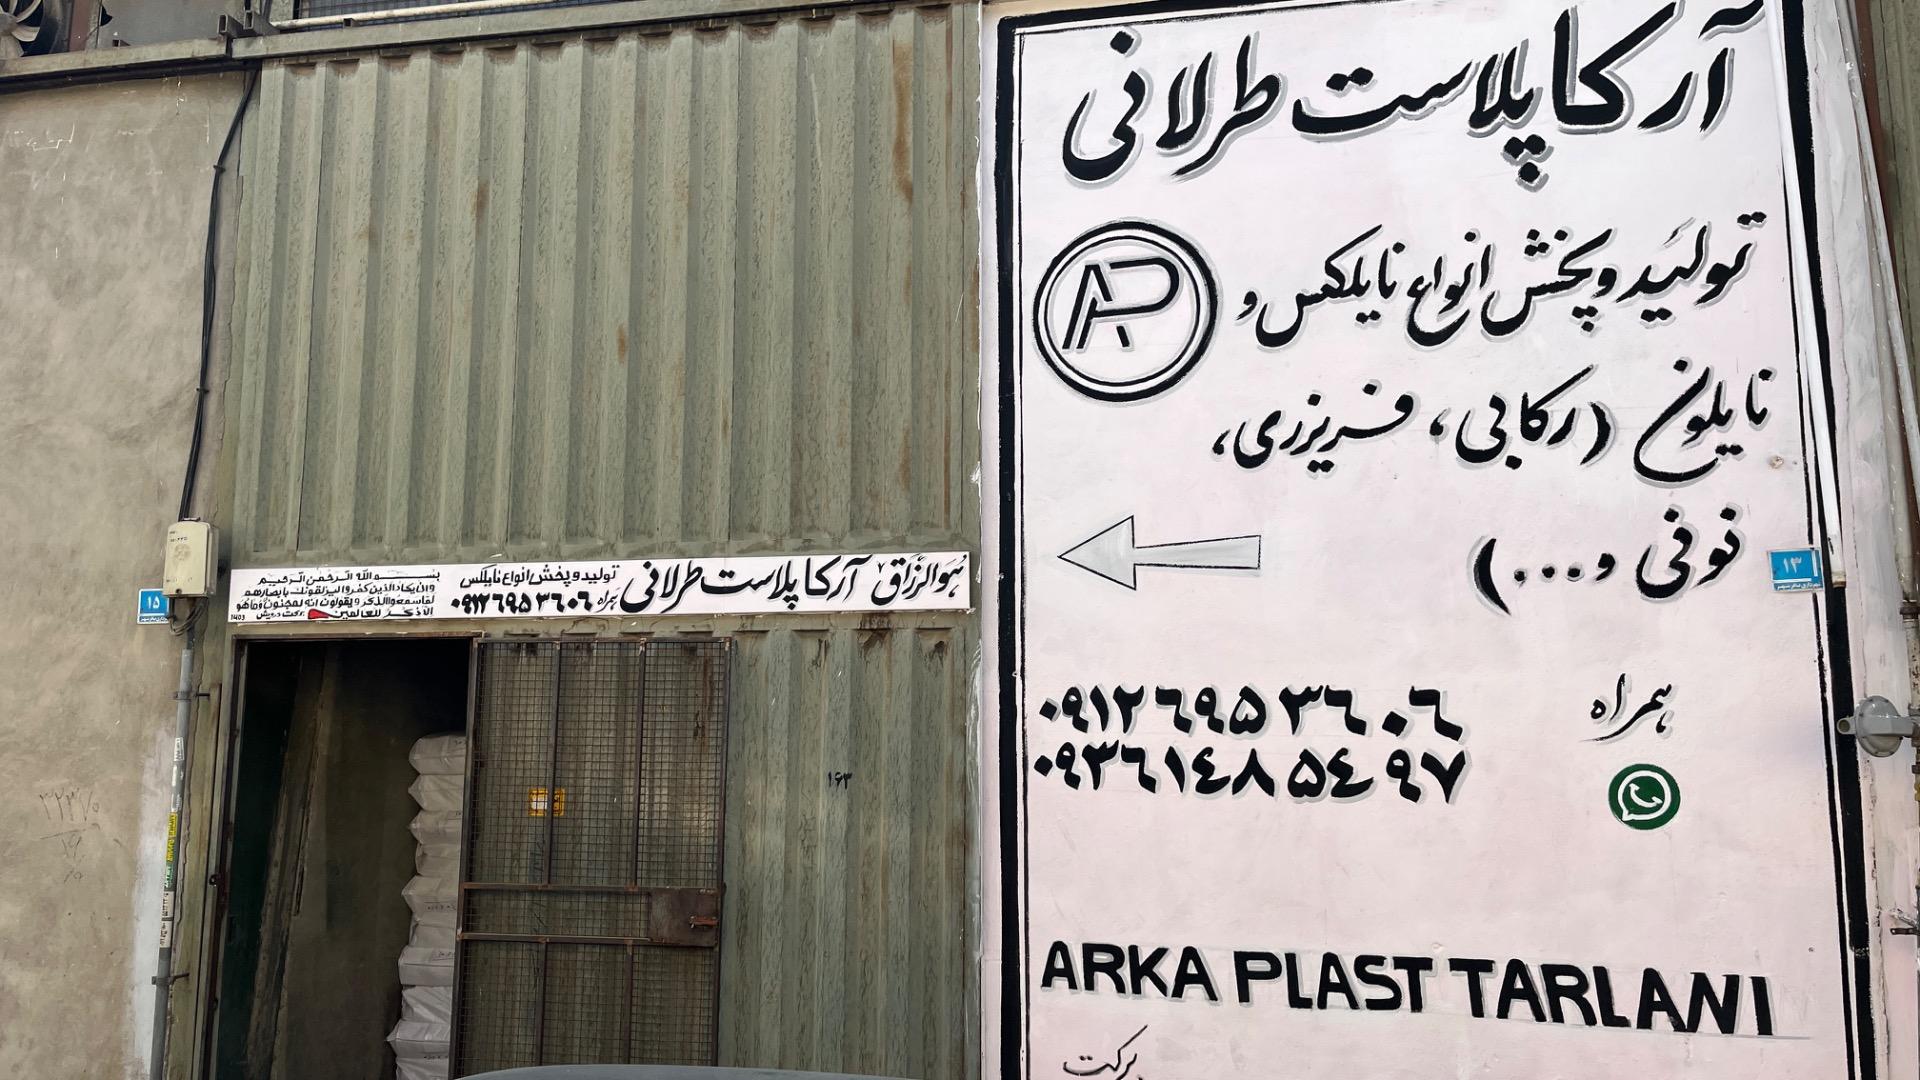 آرکا پلاست طرلانی
AP
تولید و پخش انواع نایلکس و
نایلون (رکابی، فریزری،
نوفی و...)
همراه
۰۹۱۲۶۹۵۳۶۰۶
۰۹۳۶۱۴۸۵۴۹۷
ARKA PLAST TARLANI
برکت
۱۳
هوالرزاق آرکا پلاست طرلانی
تولید و پخش انواع نایلکس
همراه ۰۹۱۲۶۹۵۳۶۰۶
بسم الله الرحمن الرحیم
وان یکاد الذین کفروا لیزلقونک بابصارهم
لما سمعوا الذکر و یقولون انه لمجنون و ما هو
الا ذکر للعالمین
1403
۱۵
۱۶۳